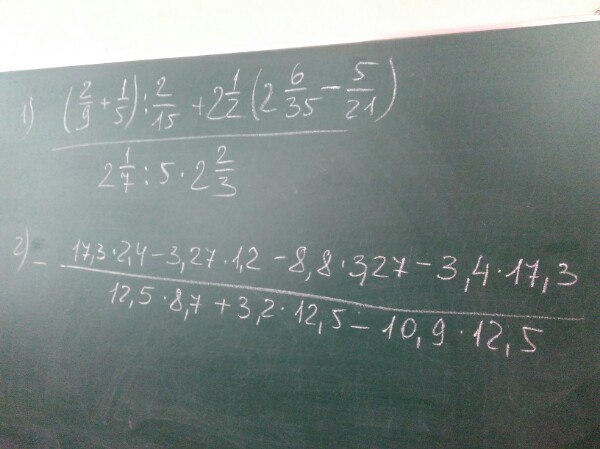 1) (2/9 + 1/5) : 2/15 + 2 1/2 (2 6/35 − 5/21)
2 1/7 : 5 · 2 2/3
2) − 17,3 · 2,4 − 3,27 · 1,2 − 8,8 · 3,27 − 3,4 · 17,3
12,5 · 8,7 + 3,2 · 12,5 − 10,9 · 12,5